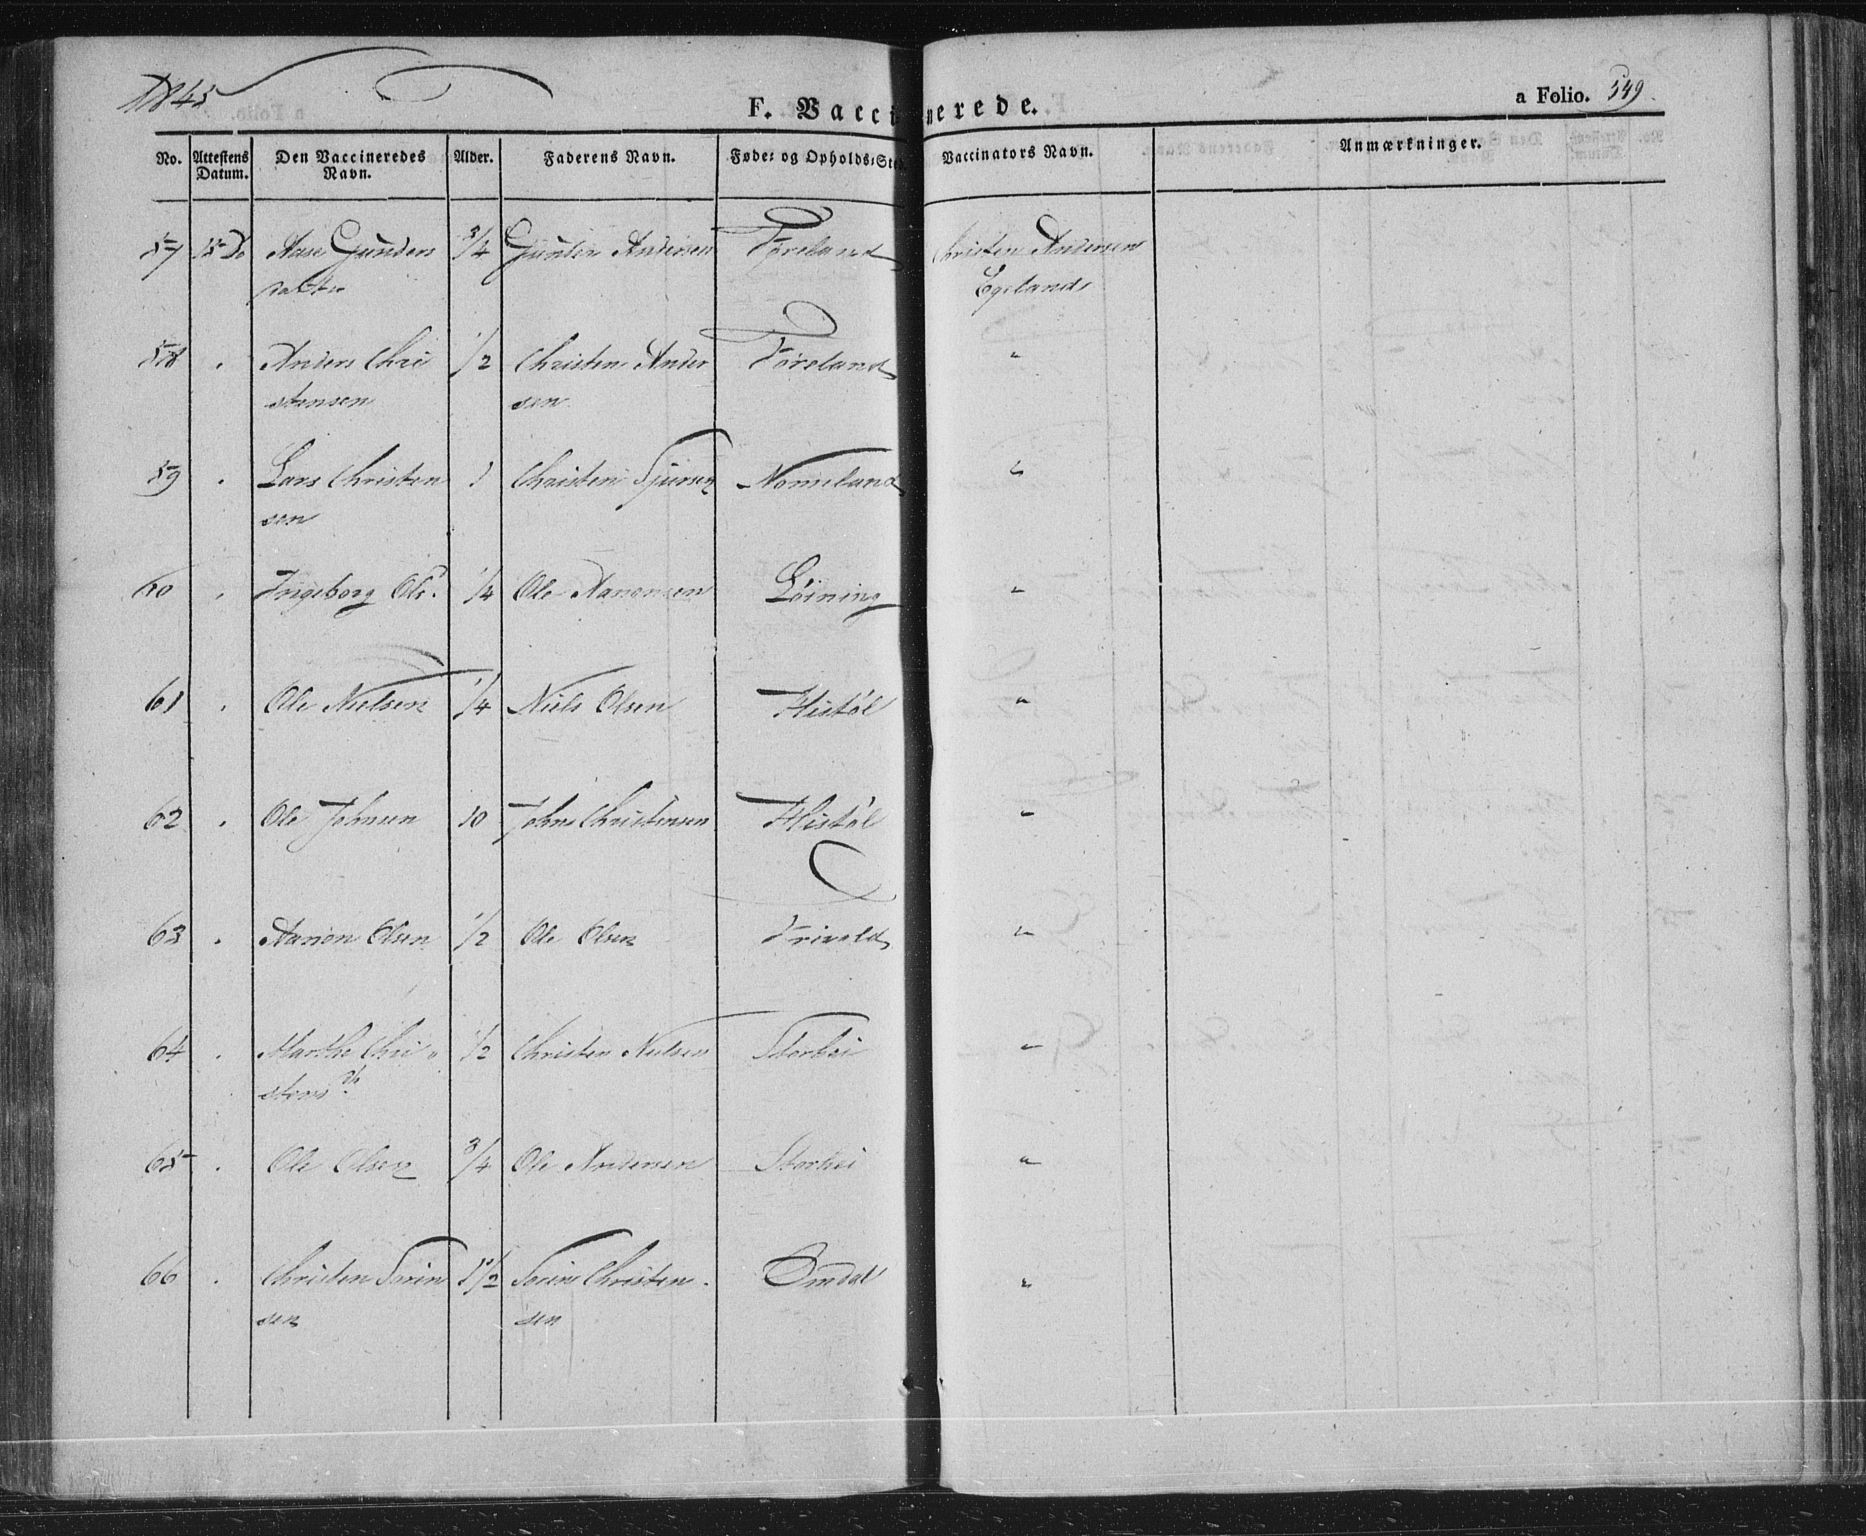 1845
F. Vaccinerede.
a Folio. 549.
No. Attestens Datum. Den Vaccineredes Navn. Alder. Faderens Navn. Føde- og Opholds-Sted. Vaccinators Navn. Anmærkninger.
57 15 Do Aase Gunders 3/4 Gunder Andersen Føreland Christen Andersen
datter Egelands
58 . Anders Chri 1/2 Christen Ander Føreland "
stensen sen
59 . Lars Christen 1 Christen Sjursen Nomeland "
sen
60 . Ingeborg Ols. 1/4 Ole Aanonsen Løining "
61 . Ole Nielsen 1/4 Niels Olsen Histøl "
62 . Ole Johnsen 10 John Christensen Histøl "
63 . Aanon Olsen 1/2 Ole Olsen Frivold "
64 . Marthe Chri 1/2 Christen Nielsen Storhei "
stensd.
65 . Ole Olsen 3/4 Ole Andersen Storhei "
66 . Christen Sørin 1 1/2 Sørin Christen Omdal "
sen sen